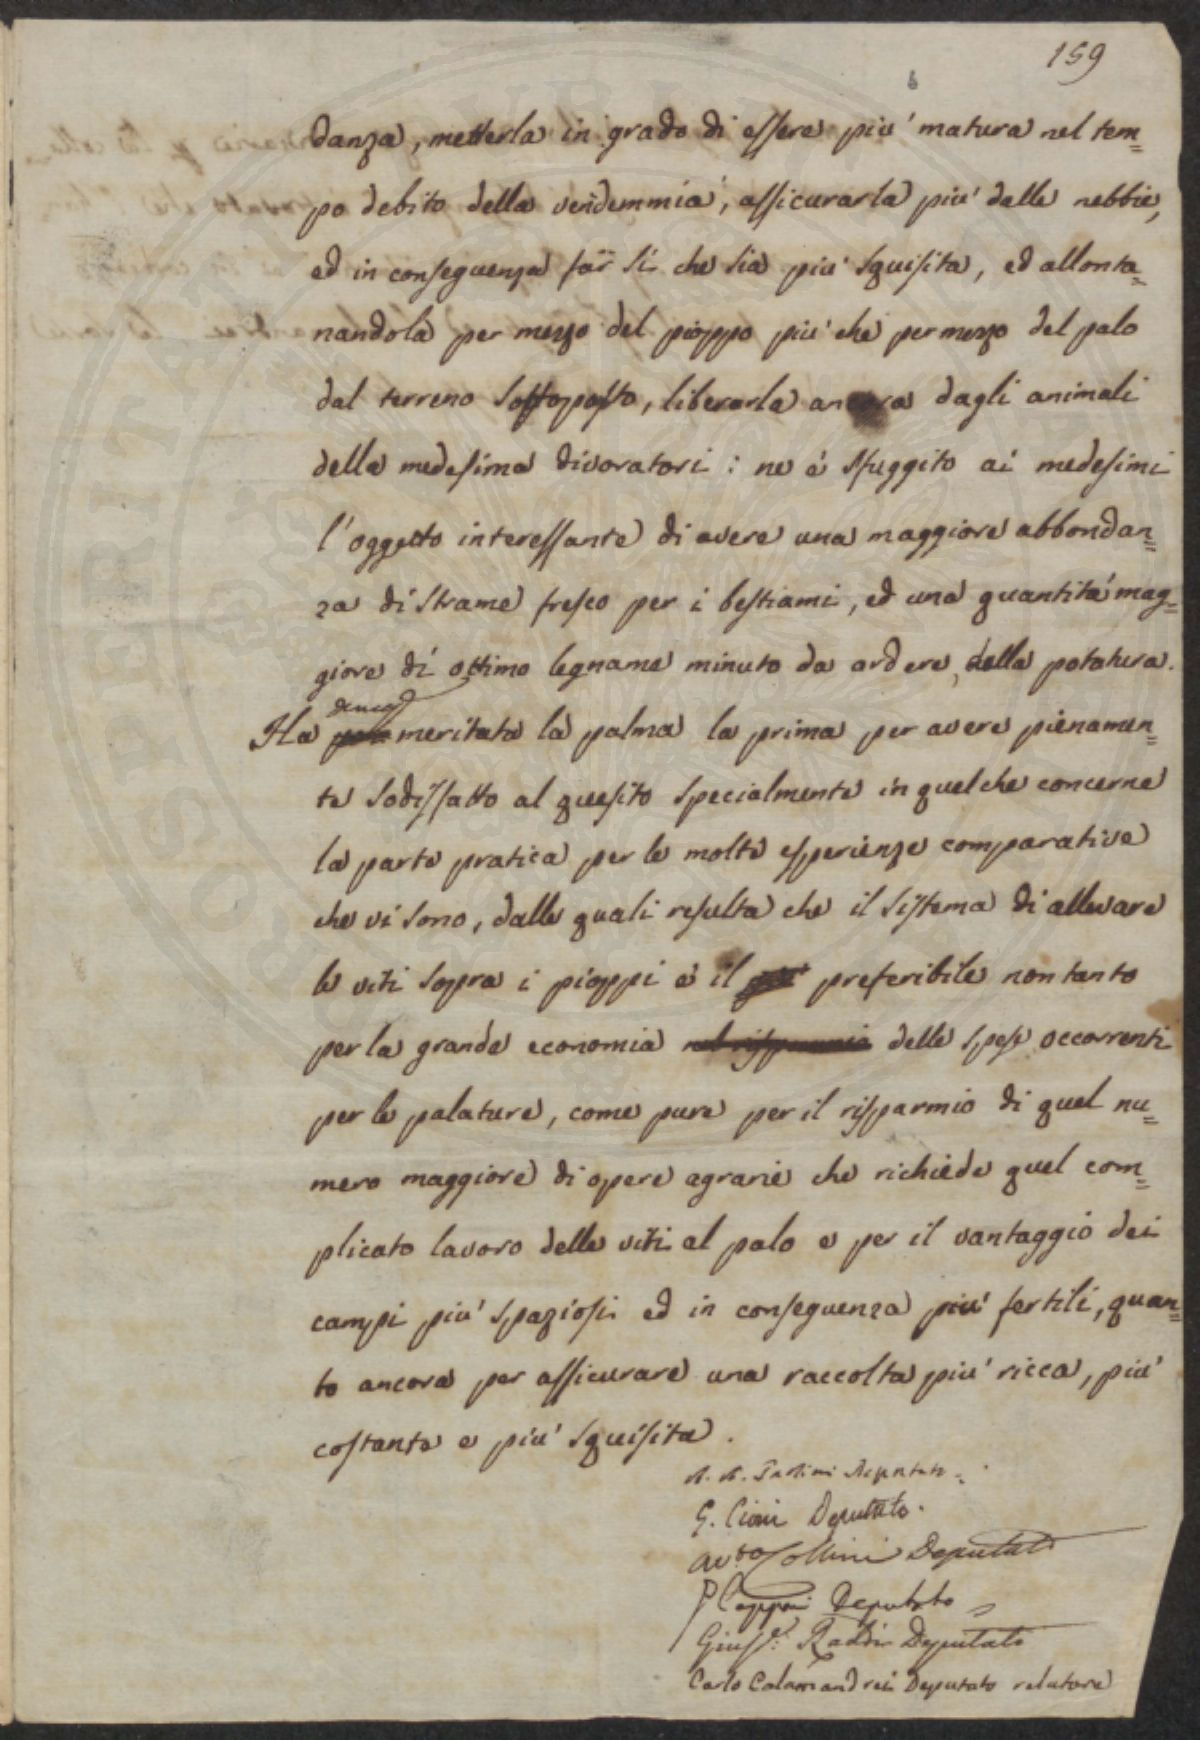 159
danza, metterla in grado di essere piu' matura nel tem=
po debito della vendemmia, assicurarla piu' dalle nebbie,
ed in conseguenza far si che sia piu' squisita, ed allonta=
nandola per mezzo del pioppo piu' che per mezzo del palo
dal terreno sottoposto, liberarla ancora dagli animali
della medesima divoratori: ne è sfuggito ai medesimi
l'oggetto interessante di avere una maggiore abbondan=
za di strame fresco per i bestiami, ed una quantità mag=
giore di ottimo legname minuto da ardere, della potatura.
Ha meritato la palma la prima per avere pienamen=
te sodisfatto al quesito specialmente in quel che concerne
la parte pratica per le molte esperienze comparative
che vi sono, dalle quali resulta che il sistema di allevare
le viti sopra i pioppi è il preferibile non tanto
per la grande economia delle spese occorrenti
per le palature, come pure per il risparmio di quel nu=
mero maggiore di opere agrarie che richiede quel com=
plicato lavoro delle viti al palo e per il vantaggio dei
campi piu' spaziosi ed in conseguenza piu' fertili, quan=
to ancora per assicurare una raccolta piu' ricca, piu'
costante e piu' squisita.
Deputato
G. Cioni Deputato.
Collini Deputato
P Capponi Deputato
Gius.e Raddi Deputato
Carlo Calamandrei Deputato relatore